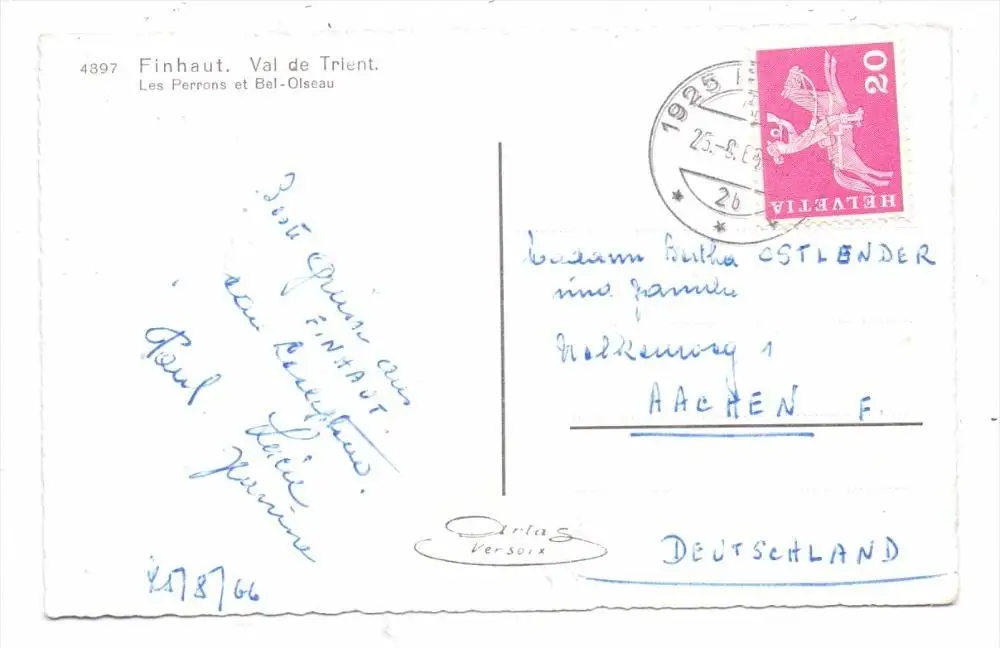 4897 Finhaut. Val de Trient.
Les Perrons et Bel-Oiseau
1925
25.-8.6
2b
20
HELVETIA
Beste Grüsse aus
FINHAUT.
Paul.
Lucie
Janine
25/8/66
Madame Bertha OSTLENDER
und Familie
1
AACHEN F.
DEUTSCHLAND
Artas
Versoix